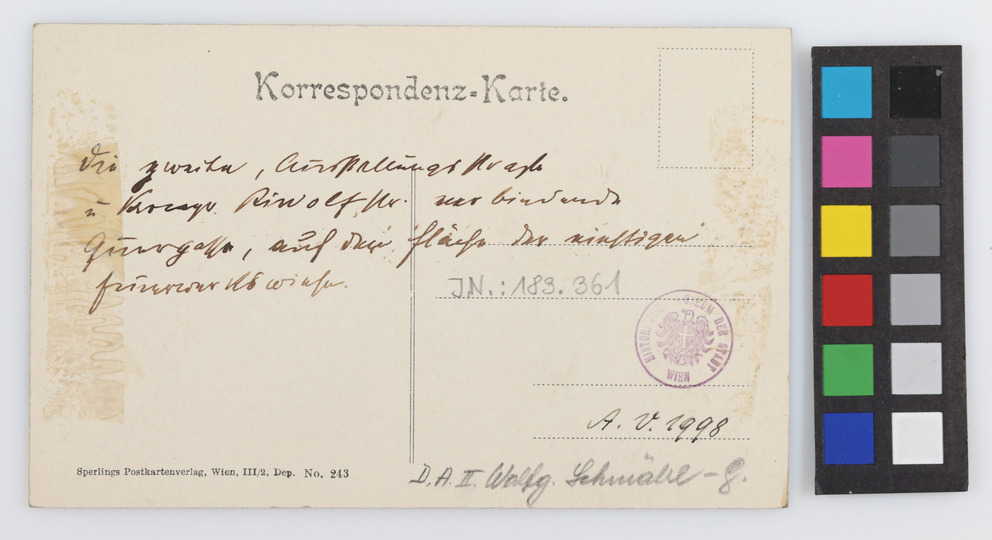 Korrespondenz-Karte.
Die zweite, Ausstellungsstraße
u Kronpr. Rudolfstr. verbindende
Quergasse, auf der Fläche der einstigen
Feuerwerkswiese.
JN.: 183.361
HISTOR. MUSEUM DER STADT
WIEN
A. V. 1998
Sperlings Postkartenverlag, Wien, III/2. Dep. No. 243
D. A. II. Wolfg.